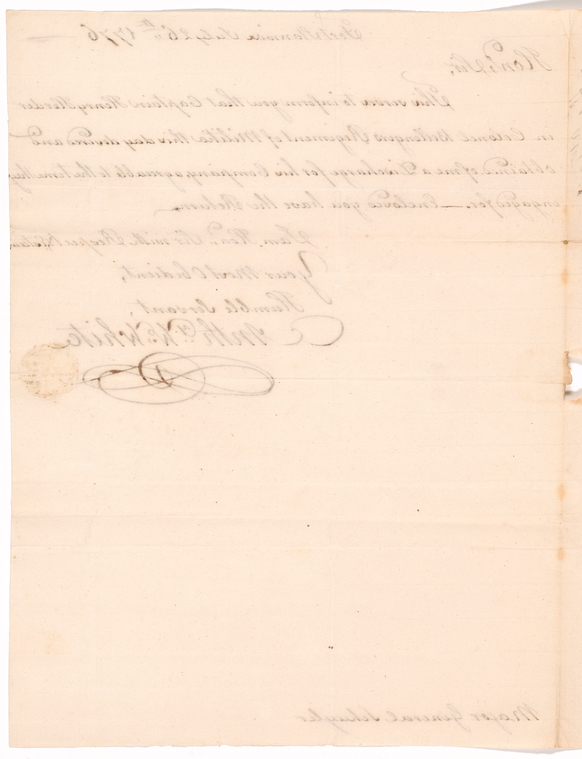 Fort Dannix July 26th 1776
Hond. Sir,
This serves to inform you that Captain Henry
in Colonel Regiment of Militia this day desired and
obtained of me a Discharge for his Company agreeable to the time they
engaged for. — Enclosed you have the Return
I am, Hond. Sir with
Your Most Obedient,
Humble Servant,
Anthy. W. White
Major General Schuyler